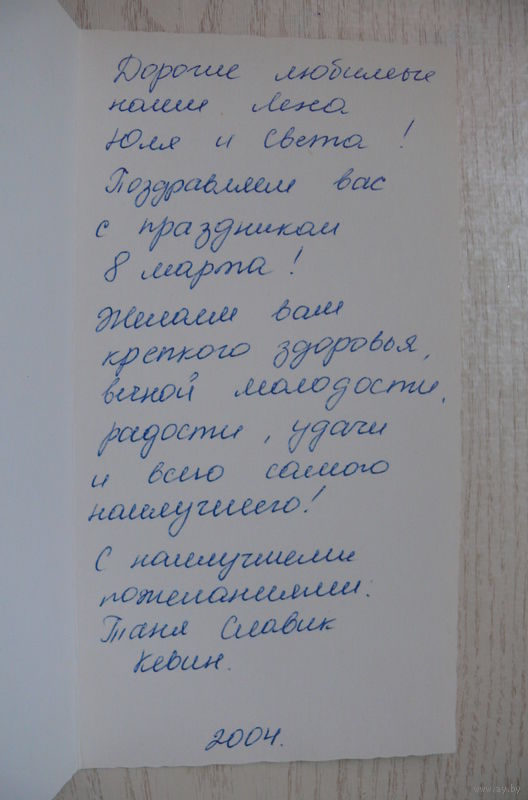 Дорогие любимые
наши Лена
Юля и Света!
Поздравляем вас
с праздником
8 марта!
Желаем вам
крепкого здоровья,
вечной молодости,
радости, удачи
и всего самого
наилучшего!
С наилучшими
пожеланиями:
Таня Славик
Кевин.
2004.
www.ay.by